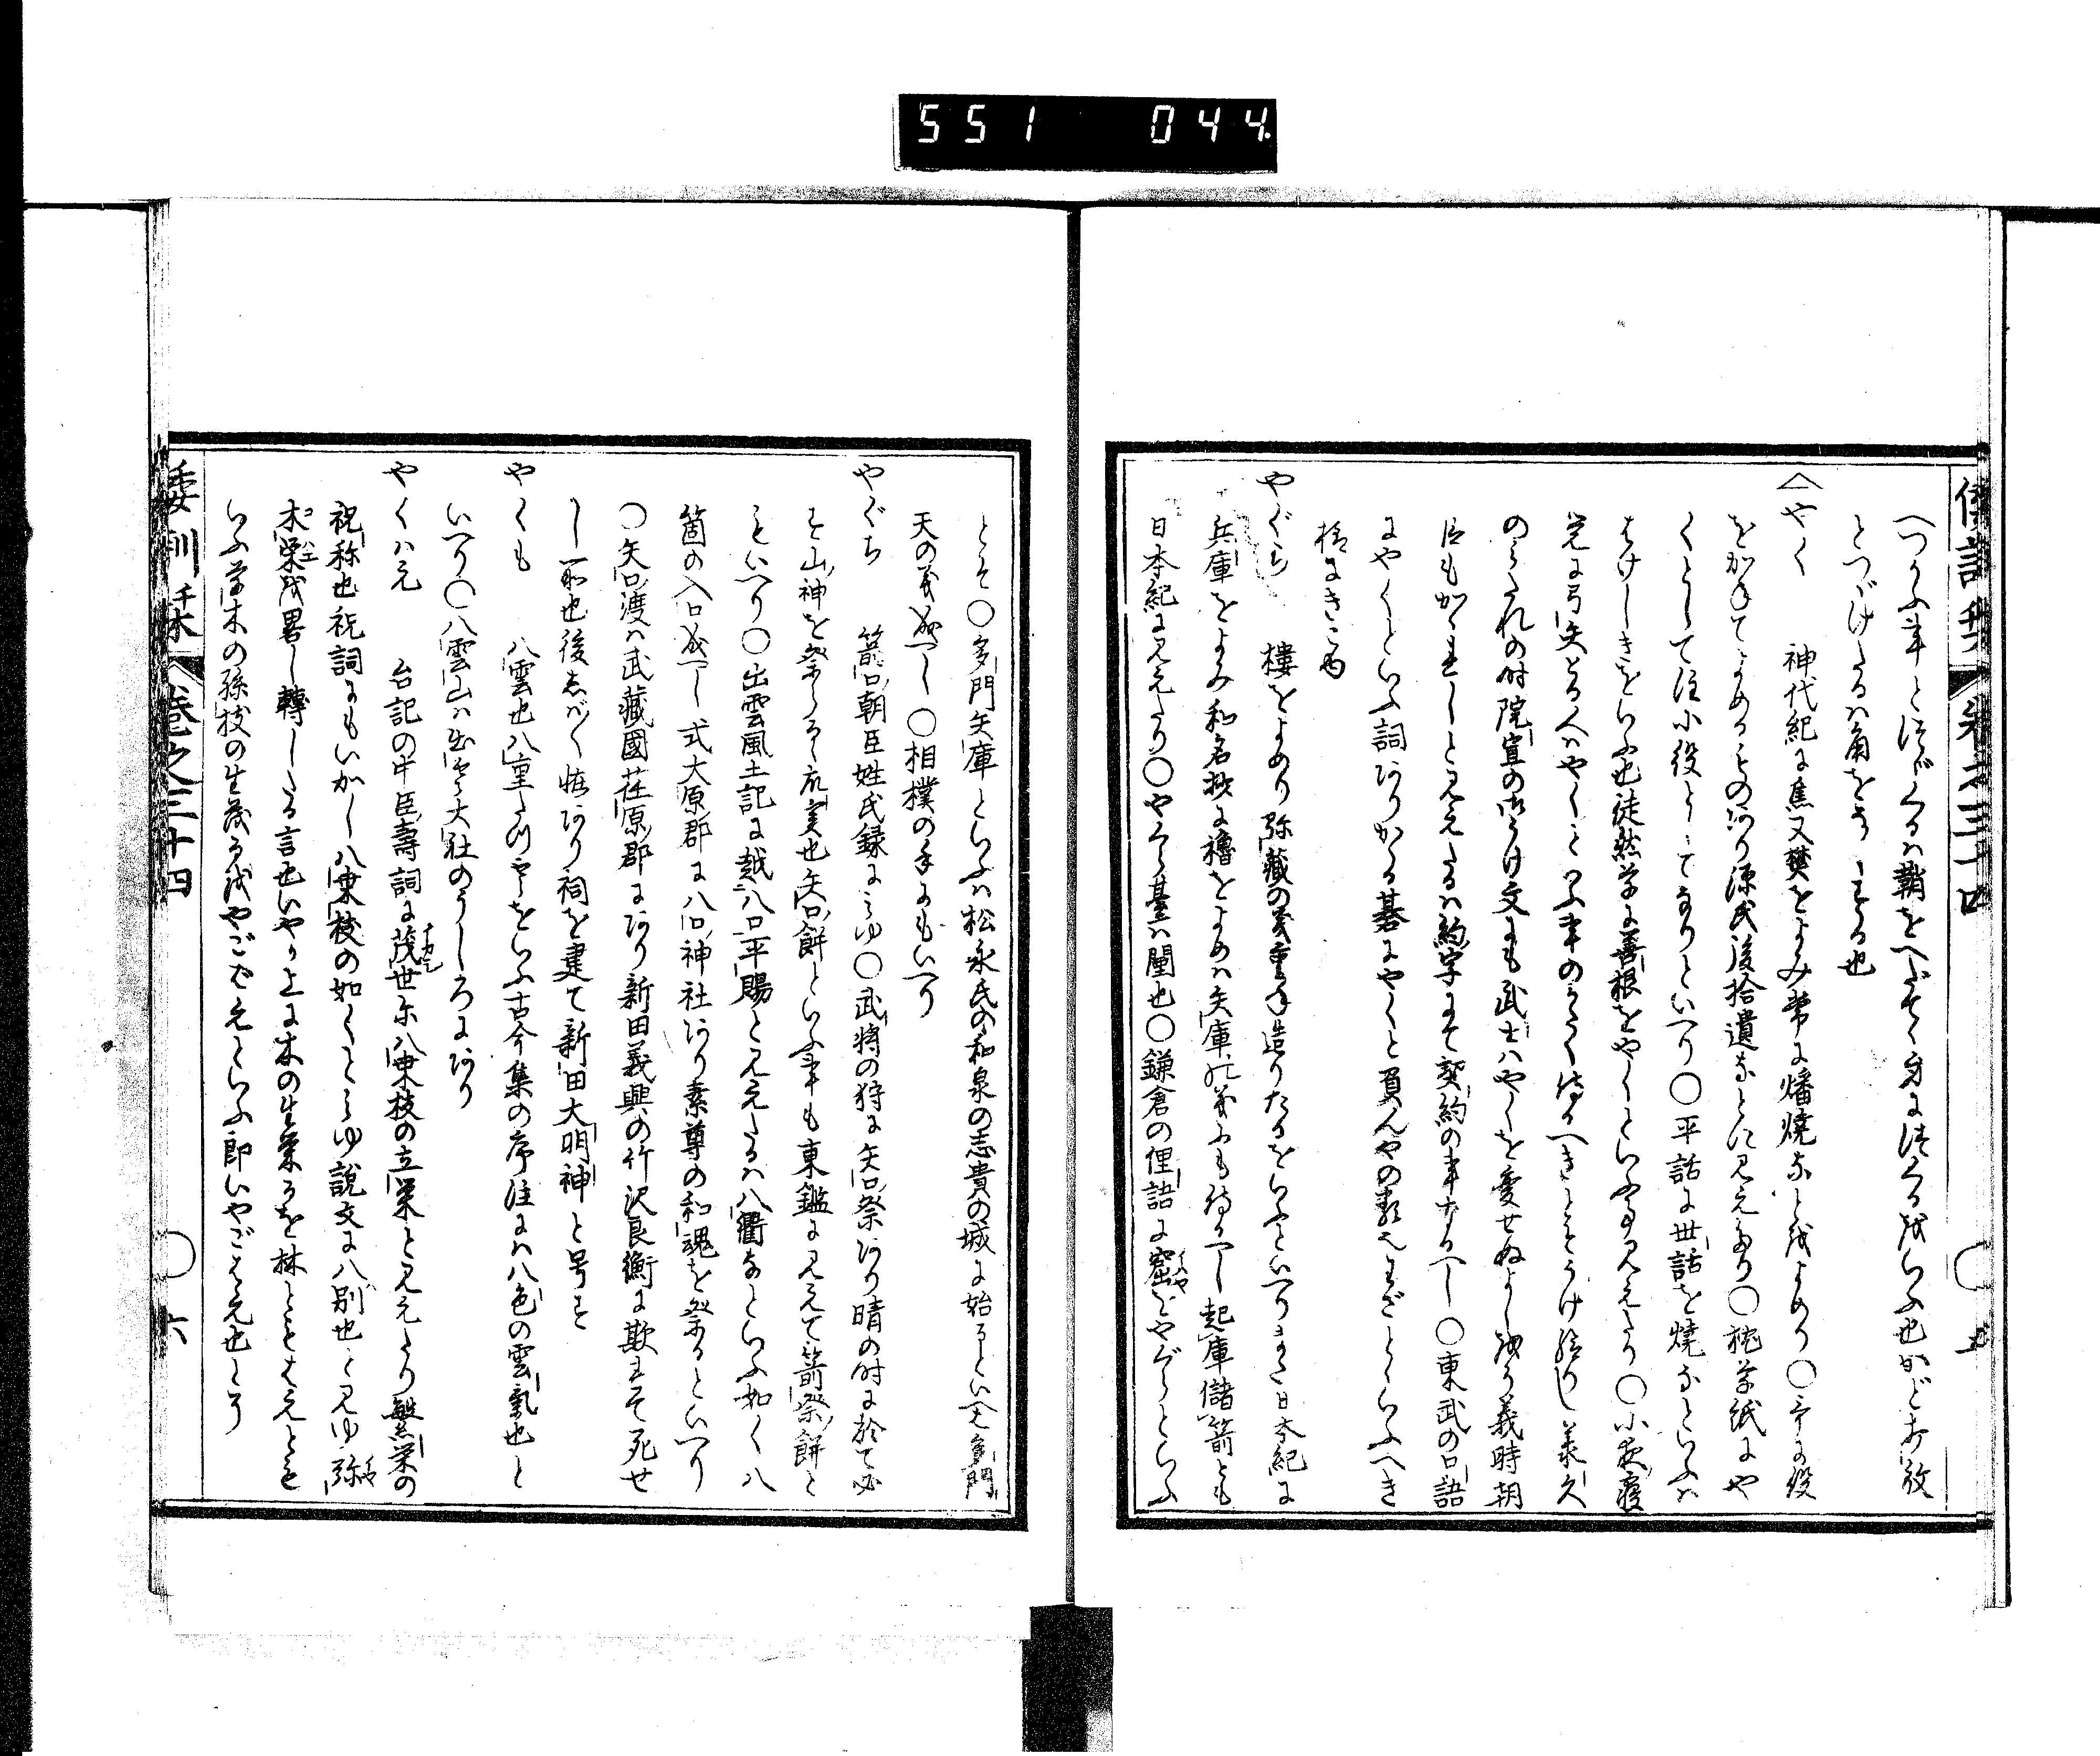 551 044
へつらふ事とはぶくるは鞘をへだてゝ身につくるをいふ也かど本放
とつゞけたるは角をう　する也
やく　神代紀に焦又樊をよみ常に燔燒などをよめり〇　に役
をかねてよめるもの有り源氏後拾遺などに見えたり〇枕草紙にや
くとして注小役としてなりといへり〇平話に世話を燒などいふは
はけしきをいふ也徒然草に善根をやくといふ事見えたり〇小夜寢
覚に弓矢とる人はやくといふ事のうく侍るへきとそうけ給りし承久
のみたれの時院宣の御うけ文にも武士はやくを變せぬよし故に義時朝
臣もかくれしと見えたるは約字にて契約の事なるへし〇東武の口語
にやくといふ詞ありかる碁にやくと負んやの類わざとゝいふへき
様にきこゆ
やぐら　樓をよめり弥藏の義重ね造りたるをいふといへりまた日本紀に
兵庫をよみ和名抄に櫓をよめは矢庫の義にも侍るへし起庫儲箭とも
日本紀に見えたり〇やくら臺は闉也〇鎌倉の俚語に窟をやぐらといふ
とそ〇多門矢庫といふは松永氏の和泉の志貴の城に始るといへり多門
天の義成へし〇相撲の手にもいへり
やぐち　箭口朝臣姓氏録にみゆ〇武将の狩に矢口祭あり晴の時に於て必
す山神を祭らるゝ流実也矢口餅といふ事も東鑑に見えて箭祭餅と
もいへり〇出雲風土記に越八口平賜と見えたるは八衢などいふ如く八
箇の入口成へし式大原郡に八口神社あり素尊の和魂を祭るといへり
〇矢口渡は武藏國荏原郡にあり新田義興の竹沢良衡に欺れて死せ
し所也後しば〳〵怪あり祠を建て新田大明神と号す
やくも　八雲也八重たつやうをいふ古今集の序注には八色の雲氣也と
いへり〇八雲山は出雲大社のうしろにあり
やくはえ　台記の中臣壽詞に茂世尓八束枝の立栄と見えたり繁栄の
祝称也祝詞にもいかし八束枝の如くとみゆ說文に八別也と見ゆ弥
木栄を畧し轉したる言也いやか上に木の生栄るを林ともはえとも
いふ草木の孫枝の生茂るをやごばえといふ即いやごはえ也とそ
倭訓栞　巻之三十四　〇五
倭訓栞　巻之三十四　〇六